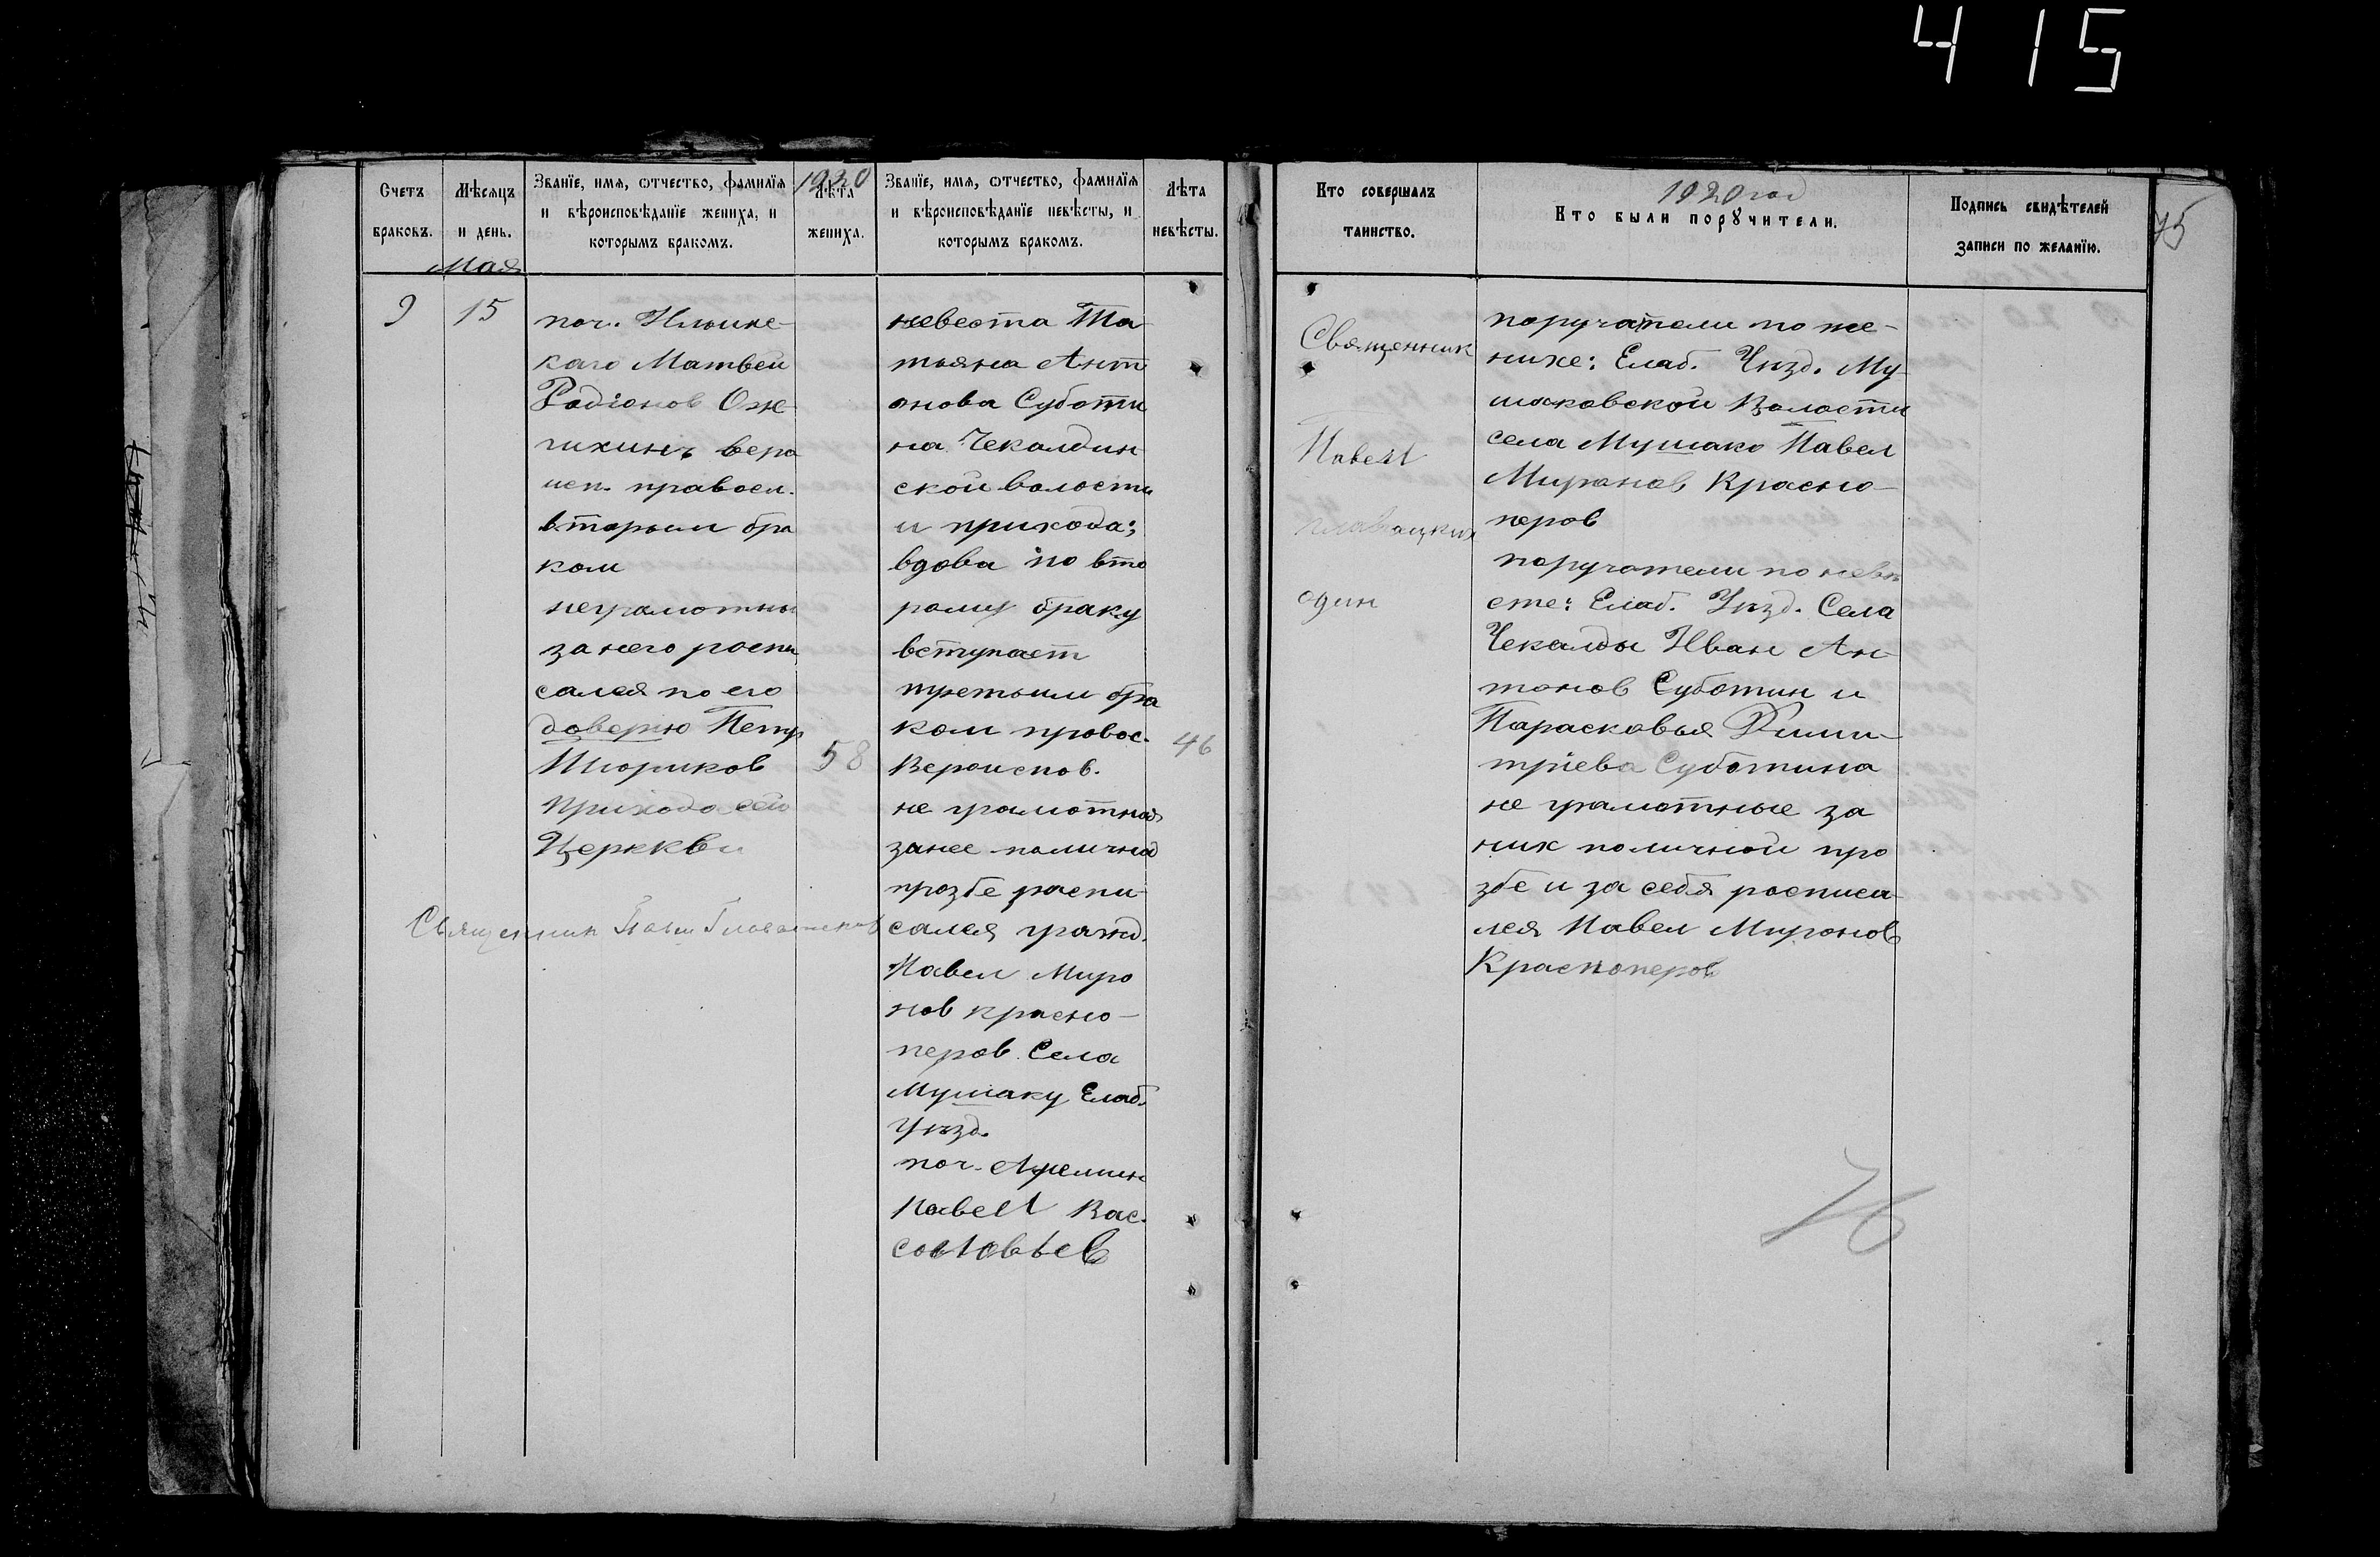 415
1920
Счетъ
браковъ.
Мѣсяцъ
и день.
Званїе, имя, ѡтчество, фамилїя
и вѣроисповѣданїе жениха, и
которымъ бракомъ.
Лѣта
жениха.
Званїе, имя, ѡтчество, фамилїя
и вѣроисповѣданїе невѣсты, и
которымъ бракомъ.
Лѣта
невѣсты.
Мая
9
15
поч. Ильинс-
каго Матвей
Радіонов Ож-
гихинъ вера
исп. правосл.
вторым бра
ком
неграмотны
за него распи
сался по его
доверию Петр
прихода сей
Церккви
58
Священник
невеста Та
тьяна Ант
онова Суботи
на Чекалдин
ской волости
и прихода;
вдова по вто
рому браку
вступает
третьим бра
ком провос.
Вероиспов.
не грамотная
за нее поличной
прозбе распи-
сался гражд.
Павел Миро
нов красно-
перов Села
Мушаку Елаб.
Уѣзд.
поч.
Павел Вас.
соловьев
46
Кто совершалъ
таинство.
1920 год
Кто были порꙋчители.
Подпись свидѣтелей
записи по желанїю.
75
Священник
Павел
один
поручатели по же-
нихе: Елаб. Уѣзд. Му-
шаковской Волости
села Мушако Павел
Миронов Красно-
перов
поручатели по невѣ
сте: Елаб. Уѣзд. Села
Чекалды Иван Ан-
тонов Суботин и
Парасковья Дими-
тріева Суботина
не грамотные за
них поличной про
збе и за себя росписа-
лся Павел Миронов
Красноперов